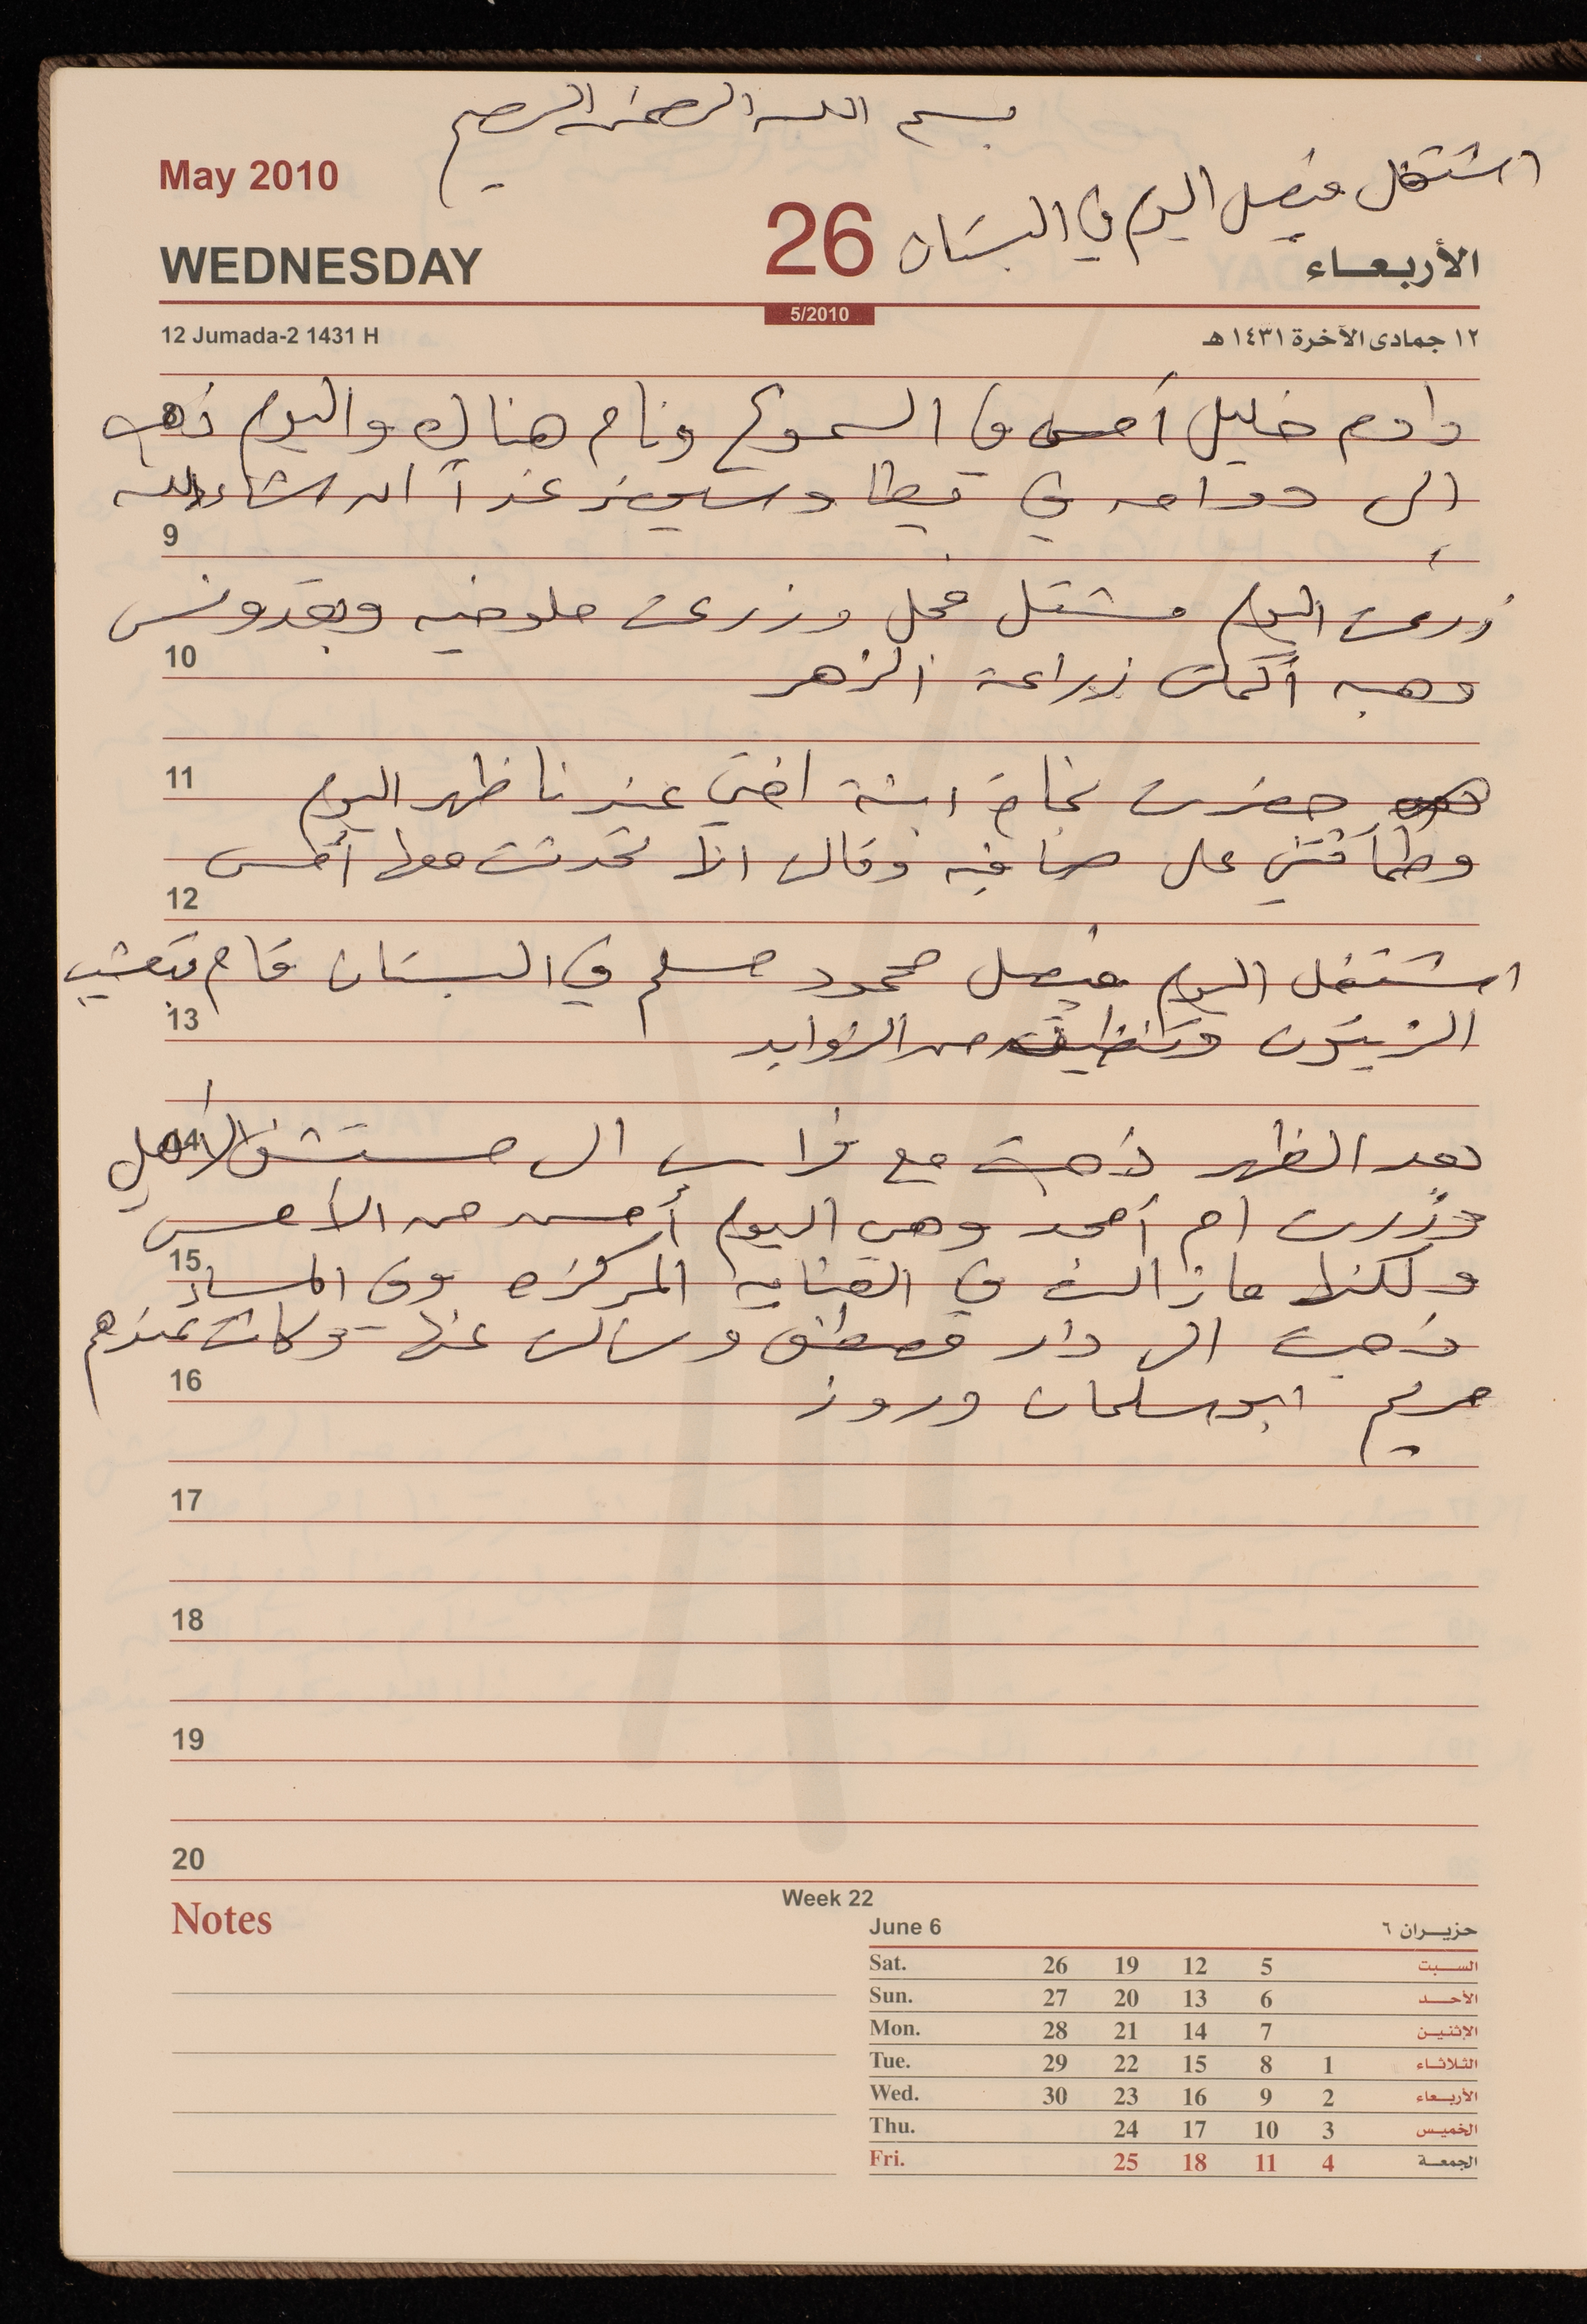 بسم الله الرحمن الرحيم
May 2010
اشتغل فيصل اليوم في البستان
26
WEDNESDAY
الأربعاء
5/2010
12 Jumada-2 1431 H
١٢ جمادى الآخرة ١٤٣١ هـ
داوم خليل أمس في السموع ونام هناك واليوم ذهب
8
إلى دوامه في يطا وسيعود غداً ان شاء الله
9
زرعت اليوم مشتل فجل وزرعت ملوخيه وبقدونس
10
وهبه أكملت زراعة الزهر
11
حضرت نجاح ابنة اختي عندنا ظهر اليوم
وطمأنتني على صافيه وقالت انها تحدثت معها أمس
12
اشتغل اليوم فيصل محمود مسلم في البستان قام بتعشيب
13
الزيتون وتنظيفه من الزوايد
14
بعد الظهر ذهبت مع فراس الى مستشفى الأهلي
وزرت ام أمجد وهي اليوم أحسن من الأمس
15
ولكنها مازالت في العنايه المركزه وفي المساء
ذهبت الى دار مصطفى وسألت عنها وكانت عندهم
16
مريم ابو سلمان وروز
17
18
19
20
Notes
Week 22
June 6 حزيران ٦
Sat. 26 19 12 5 السبت
Sun. 27 20 13 6 الأحد
Mon. 28 21 14 7 الإثنين
Tue. 29 22 15 8 1 الثلاثاء
Wed. 30 23 16 9 2 الأربعاء
Thu. 24 17 10 3 الخميس
Fri. 25 18 11 4 الجمعة